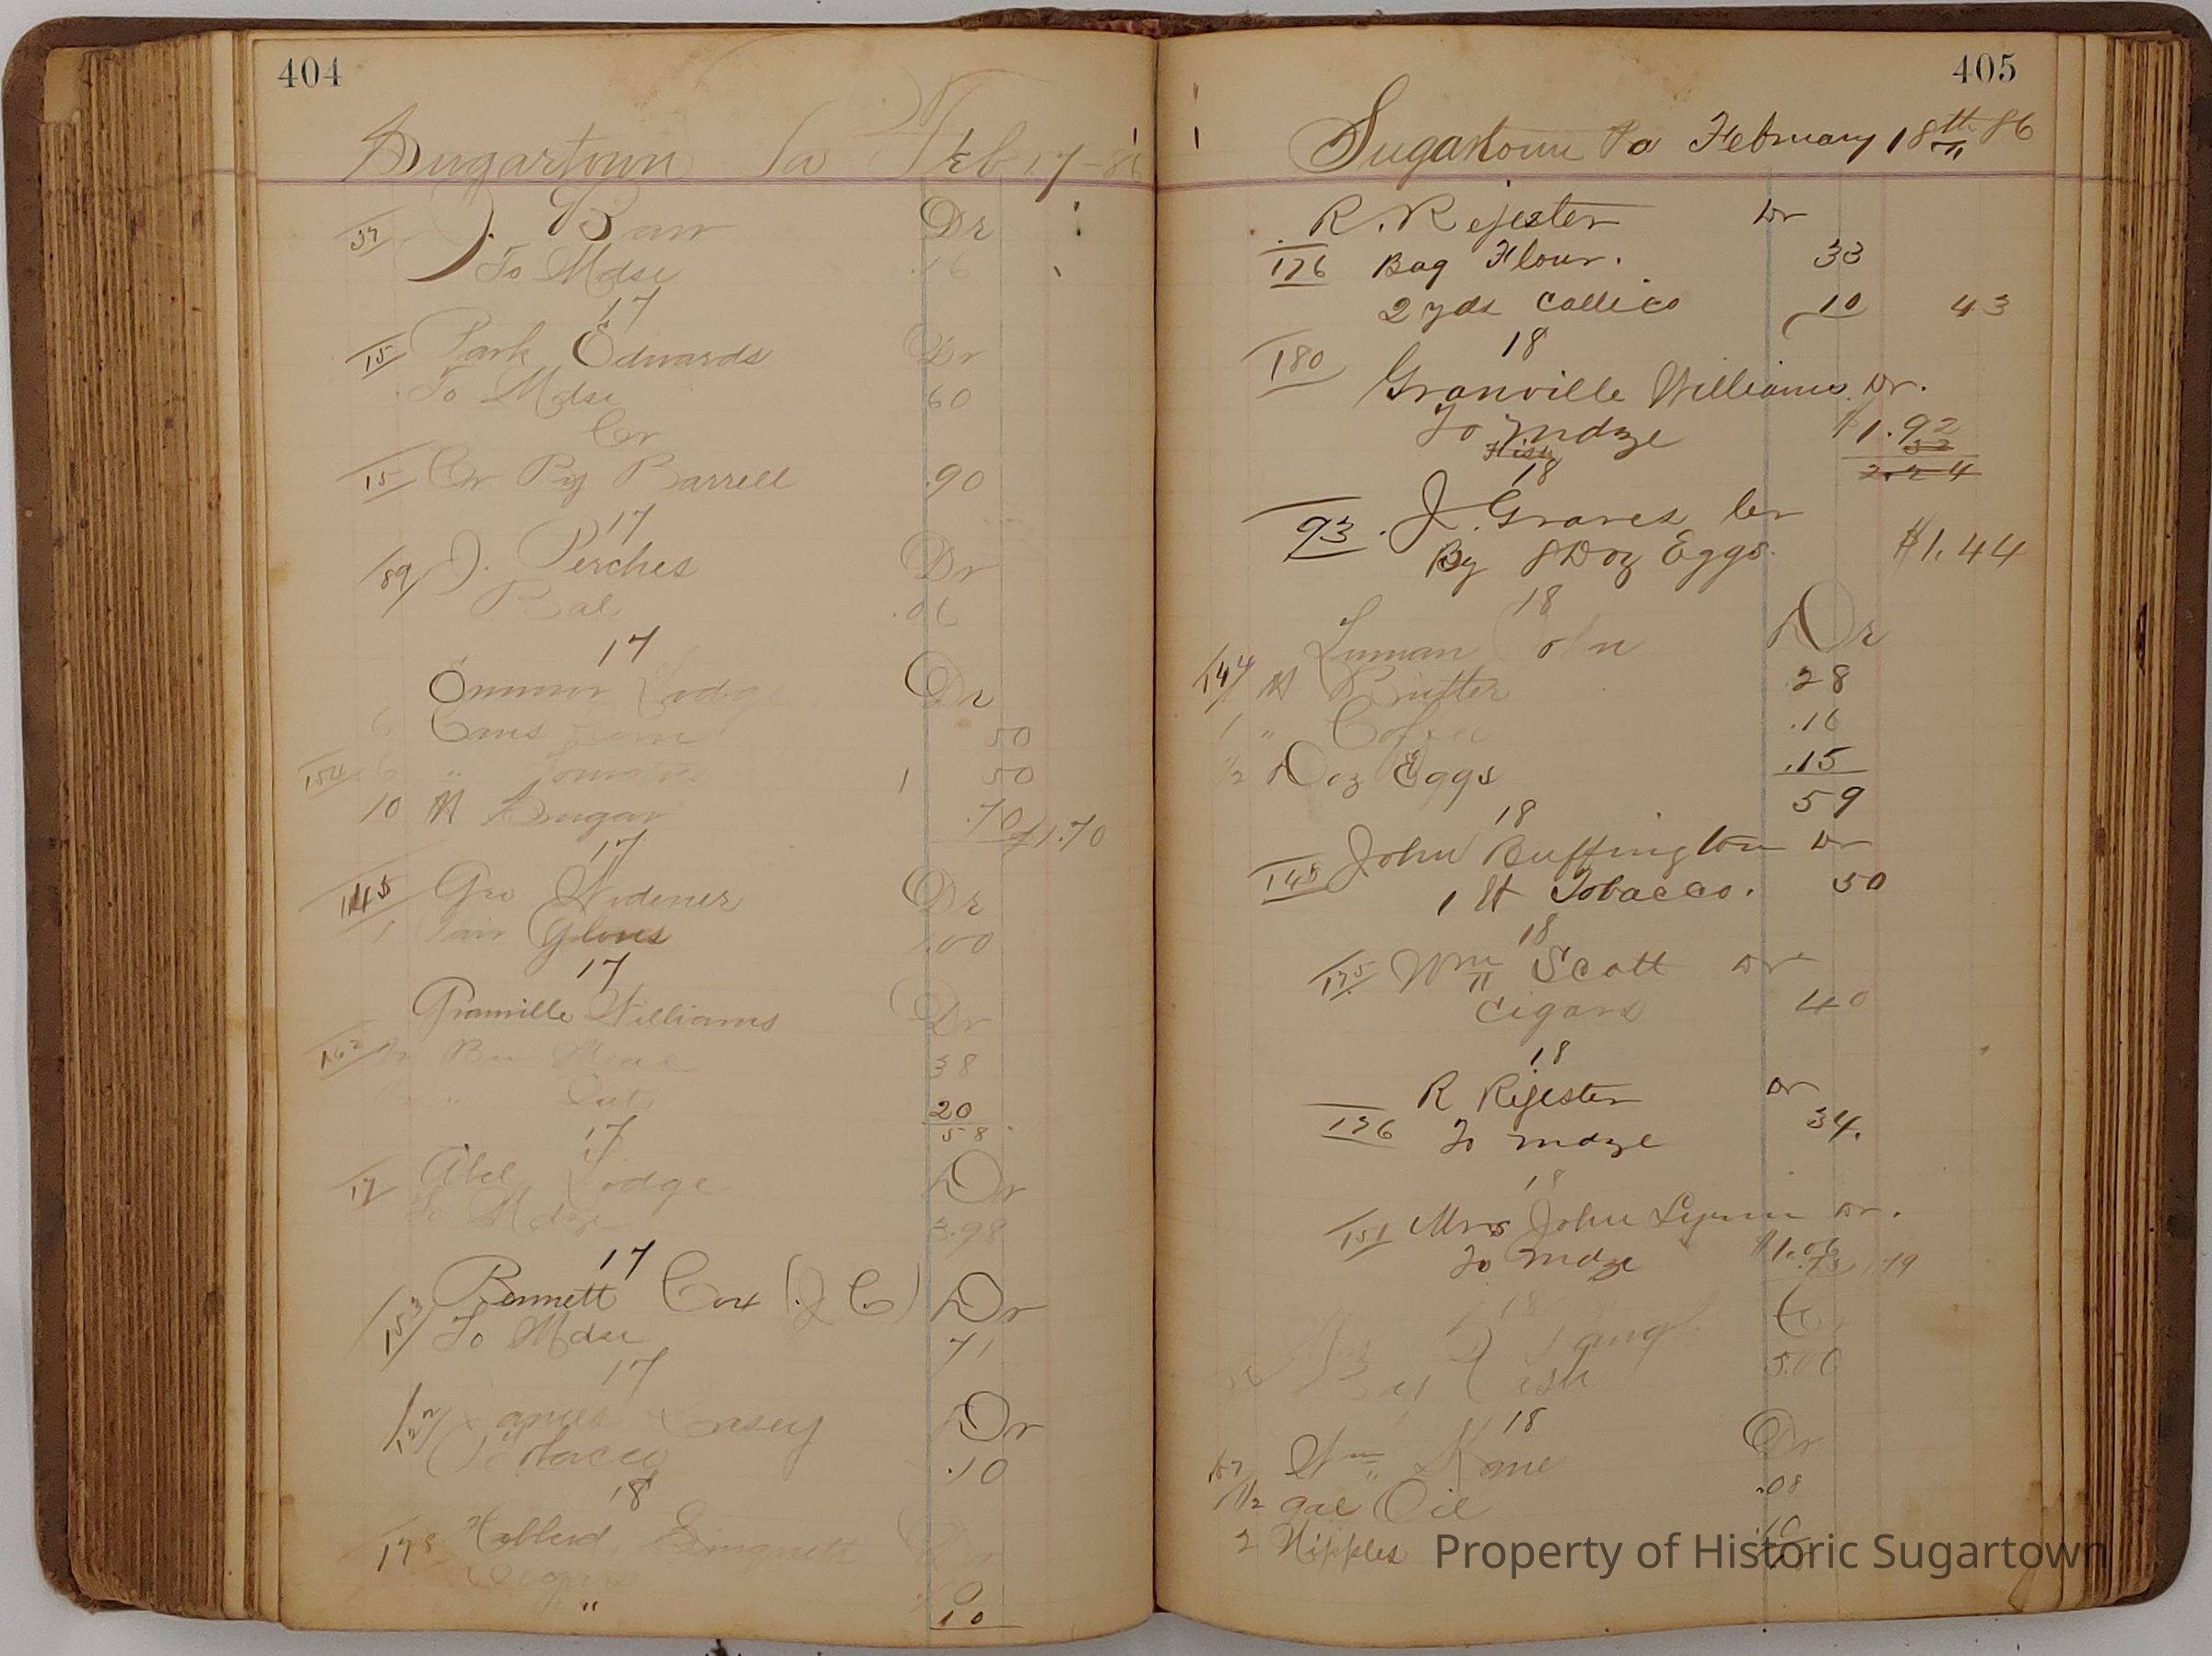 404
Sugartown Pa Feb 17-86
37 J. Barr Dr
To Mdse .16
17
15 Park Edwards Dr
To Mdse 60
Cr
15 Cr By Barrell .90
17
89 J. Perches Dr
Bal .06
17
Lodge Dr
6 Cans Corn 50
154 6 " Tomatoes 1 50
10 lb Sugar .70 $1.70
17
145 Geo Widener Dr
1 Pair Gloves 1.00
17
Granville Williams Dr
162 Bu Meal 38
" Oats 20
58
17
17 Abel Lodge Dr
To Mdse 3.98
17
Bennett Cox (J C) Dr
153 To Mdse 71
17
James Casey Dr
Tobacco .10
18
178 Dr
Cigars 10
" 10
405
Sugartown Pa February 18th 86
R. Rejester Dr
176 Bag Flour. 33
2 yds Callico 10 43
18
180 Granville Williams Dr.
To Mdze $1.92
Fish 32
2.24
18
93. J. Graves Cr
By 8 Doz Eggs. $1.44
18
Luman Dr
144 lb Butter .28
1 " Coffee .16
1/2 Doz Eggs .15
59
18
145 John Buffington Dr
1 lb Tobacco. 50
18
175 Wm Scott Dr
Cigars 40
18
R Rejester Dr
176 To Mdze 34.
18
151 Mrs John Lynn Dr.
To Mdze $1.06
18
Cr
By Cash 5.00
18
Wm Kane Dr
1/2 gal Oil .08
2 Nipples .10
Property of Historic Sugartown